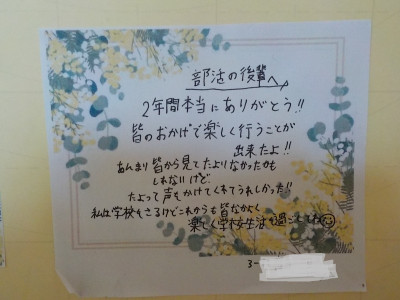 部活の後輩へ
2年間本当にありがとう!!
皆のおかげで楽しく行うことが
出来たよ!!
あんまり皆から見てたよりなかったかも
しれないけど
たよって声をかけてくれてうれしかった!!
私は学校をさるけどこれからも皆なかよく
楽しく学校生活を過ごしてね
3-